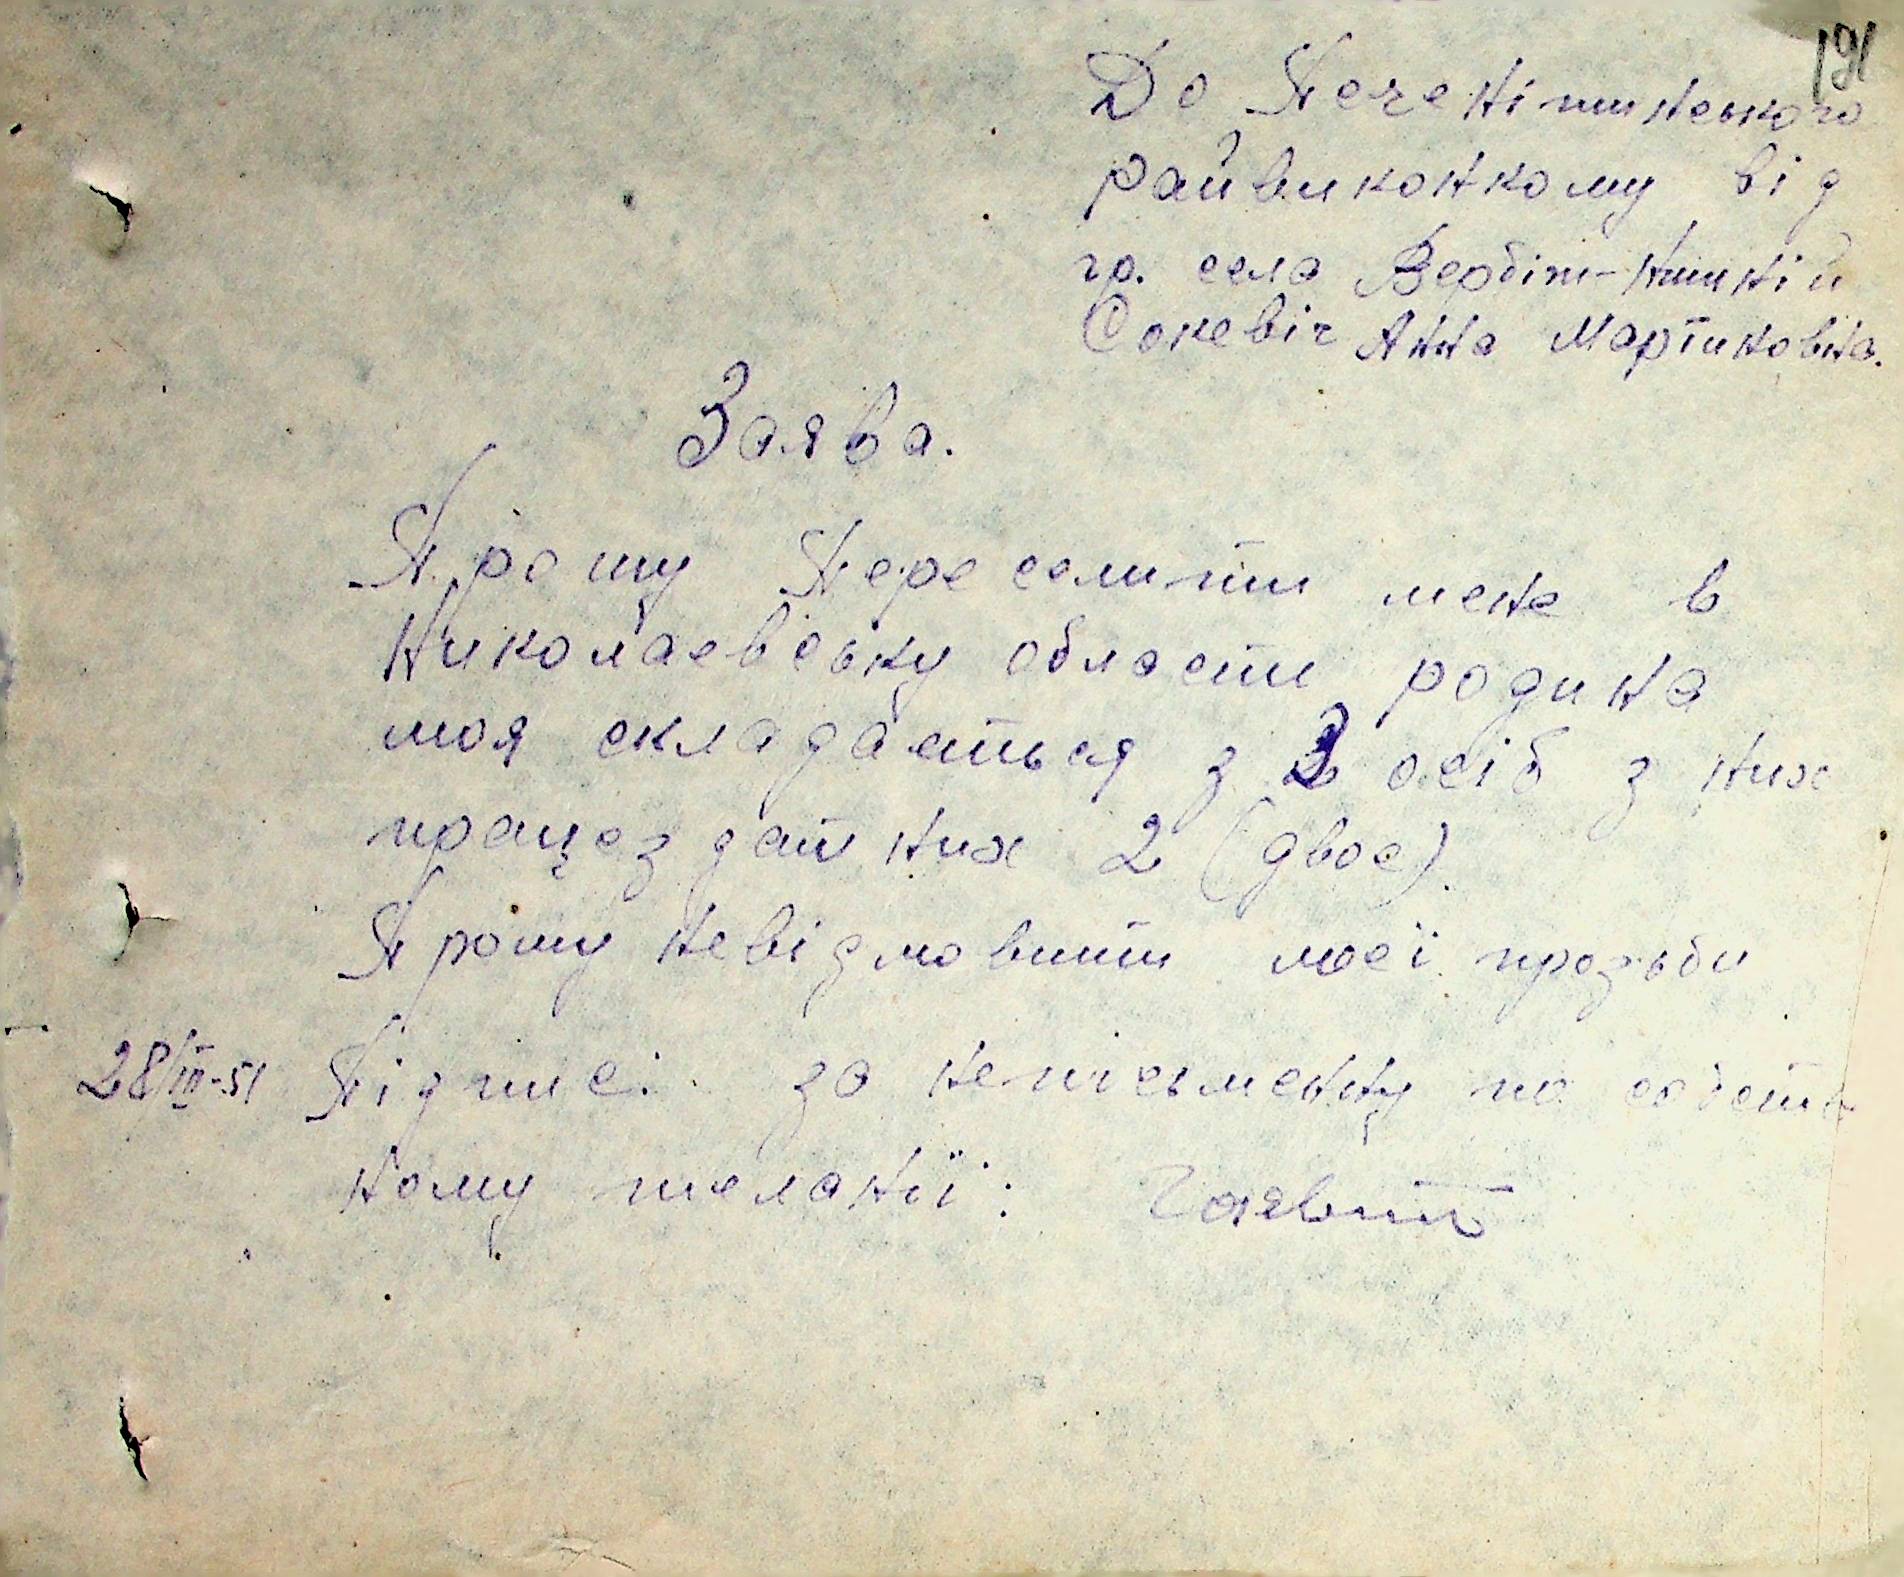 191
До Печеніжинського
райвиконкому від
гр. села Вербіж-Нижній
Соневіч Анна Мартиновна.
Заява.
Прошу Переселити мене в
Николаевську области родина
моя складається з 3 осіб з них
працездатних 2 (двое).
Прошу невідмовити моеї прозьби
28/III-51 Підпис: за непісьменну по собств
ному желанії: